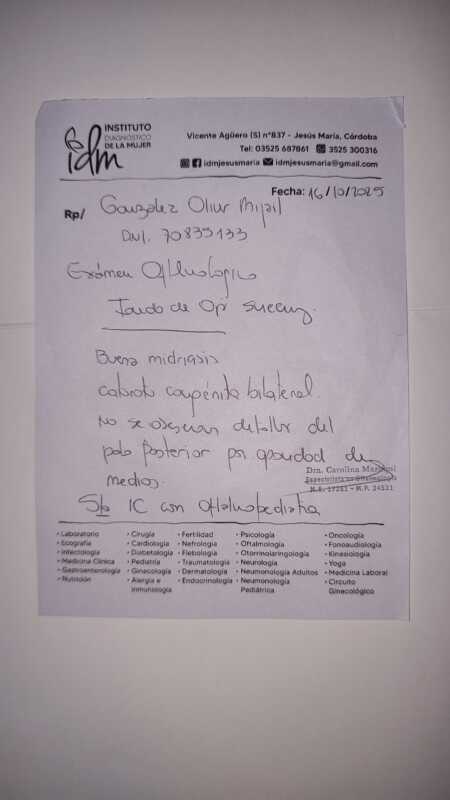 idm
INSTITUTO
DIAGNÓSTICO
DE LA MUJER
Vicente Agüero (S) nº837 - Jesús María, Córdoba
Tel: 03525 687861 3525 300316
idmjesusmaria idmjesusmaria@gmail.com
Fecha: 16/10/2025
Rp/ Gonzalez Oliver
DNI. 70835133
Exámen Oftalmologico
Fondo de Ojo
Buena midriasis
catarata congénita bilateral.
No se observan detalles del
polo posterior por opacidad de
medios.
Dra. Carolina
Especialista en Oftalmología
S/o IC con oftalmopediatria
• Laboratorio
• Ecografía
• Infectología
• Medicina Clínica
• Gastroenterología
• Nutrición
• Cirugía
• Cardiología
• Diabetología
• Pediatría
• Ginecología
• Alergia e
Inmunología
• Fertilidad
• Nefrología
• Flebología
• Traumatología
• Dermatología
• Endocrinología
• Psicología
• Oftalmología
• Otorrinolaringología
• Neurología
• Neumonología Adultos
• Neumonología
Pediátrica
• Oncología
• Fonoaudiología
• Kinesiología
• Yoga
• Medicina Laboral
• Circuito
Ginecológico